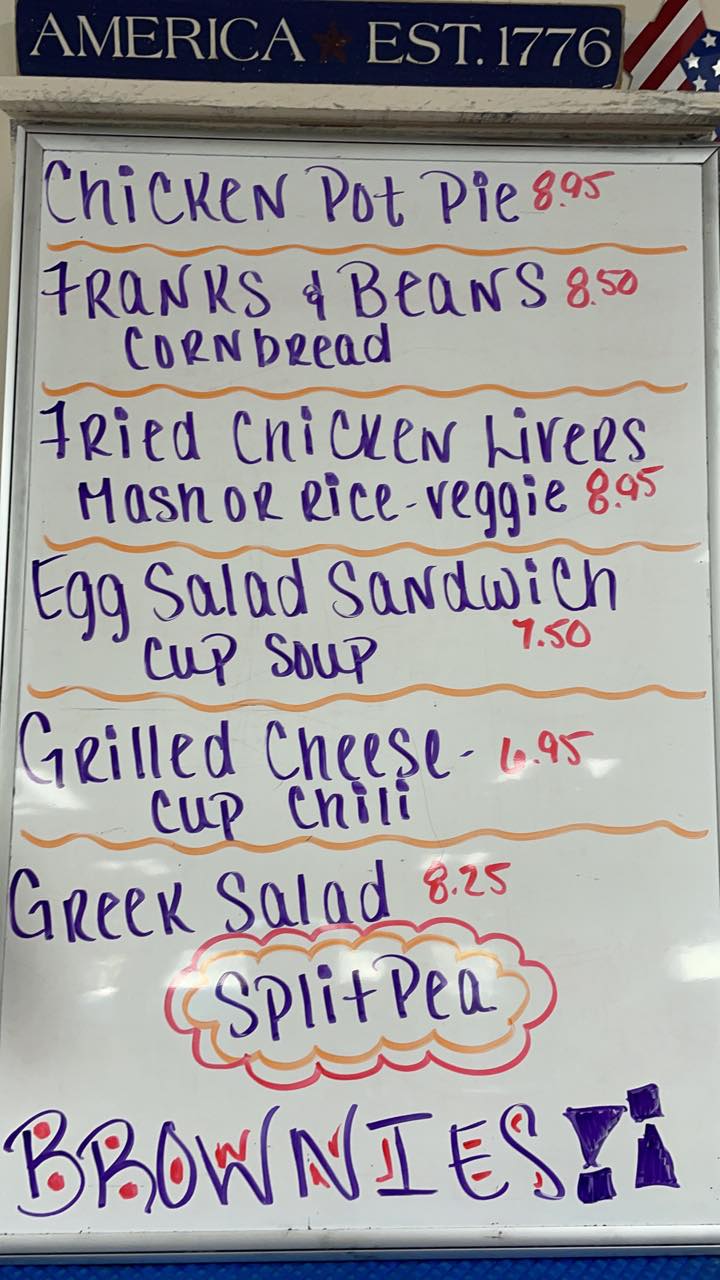 AMERICA ★ EST. 1776
CHiCKEN Pot Pie 8.95
FRANKS & BEANS 8.50
CORNbRead
FRied CHiCKEN LiveRS
Mash OR Rice-veggie 8.95
Egg Salad SaNdwich
7.50
Cup Soup
GRilled Cheese- 6.95
Cup Chili
GReeK Salad 8.25
Split Pea
BROWNIES!¡